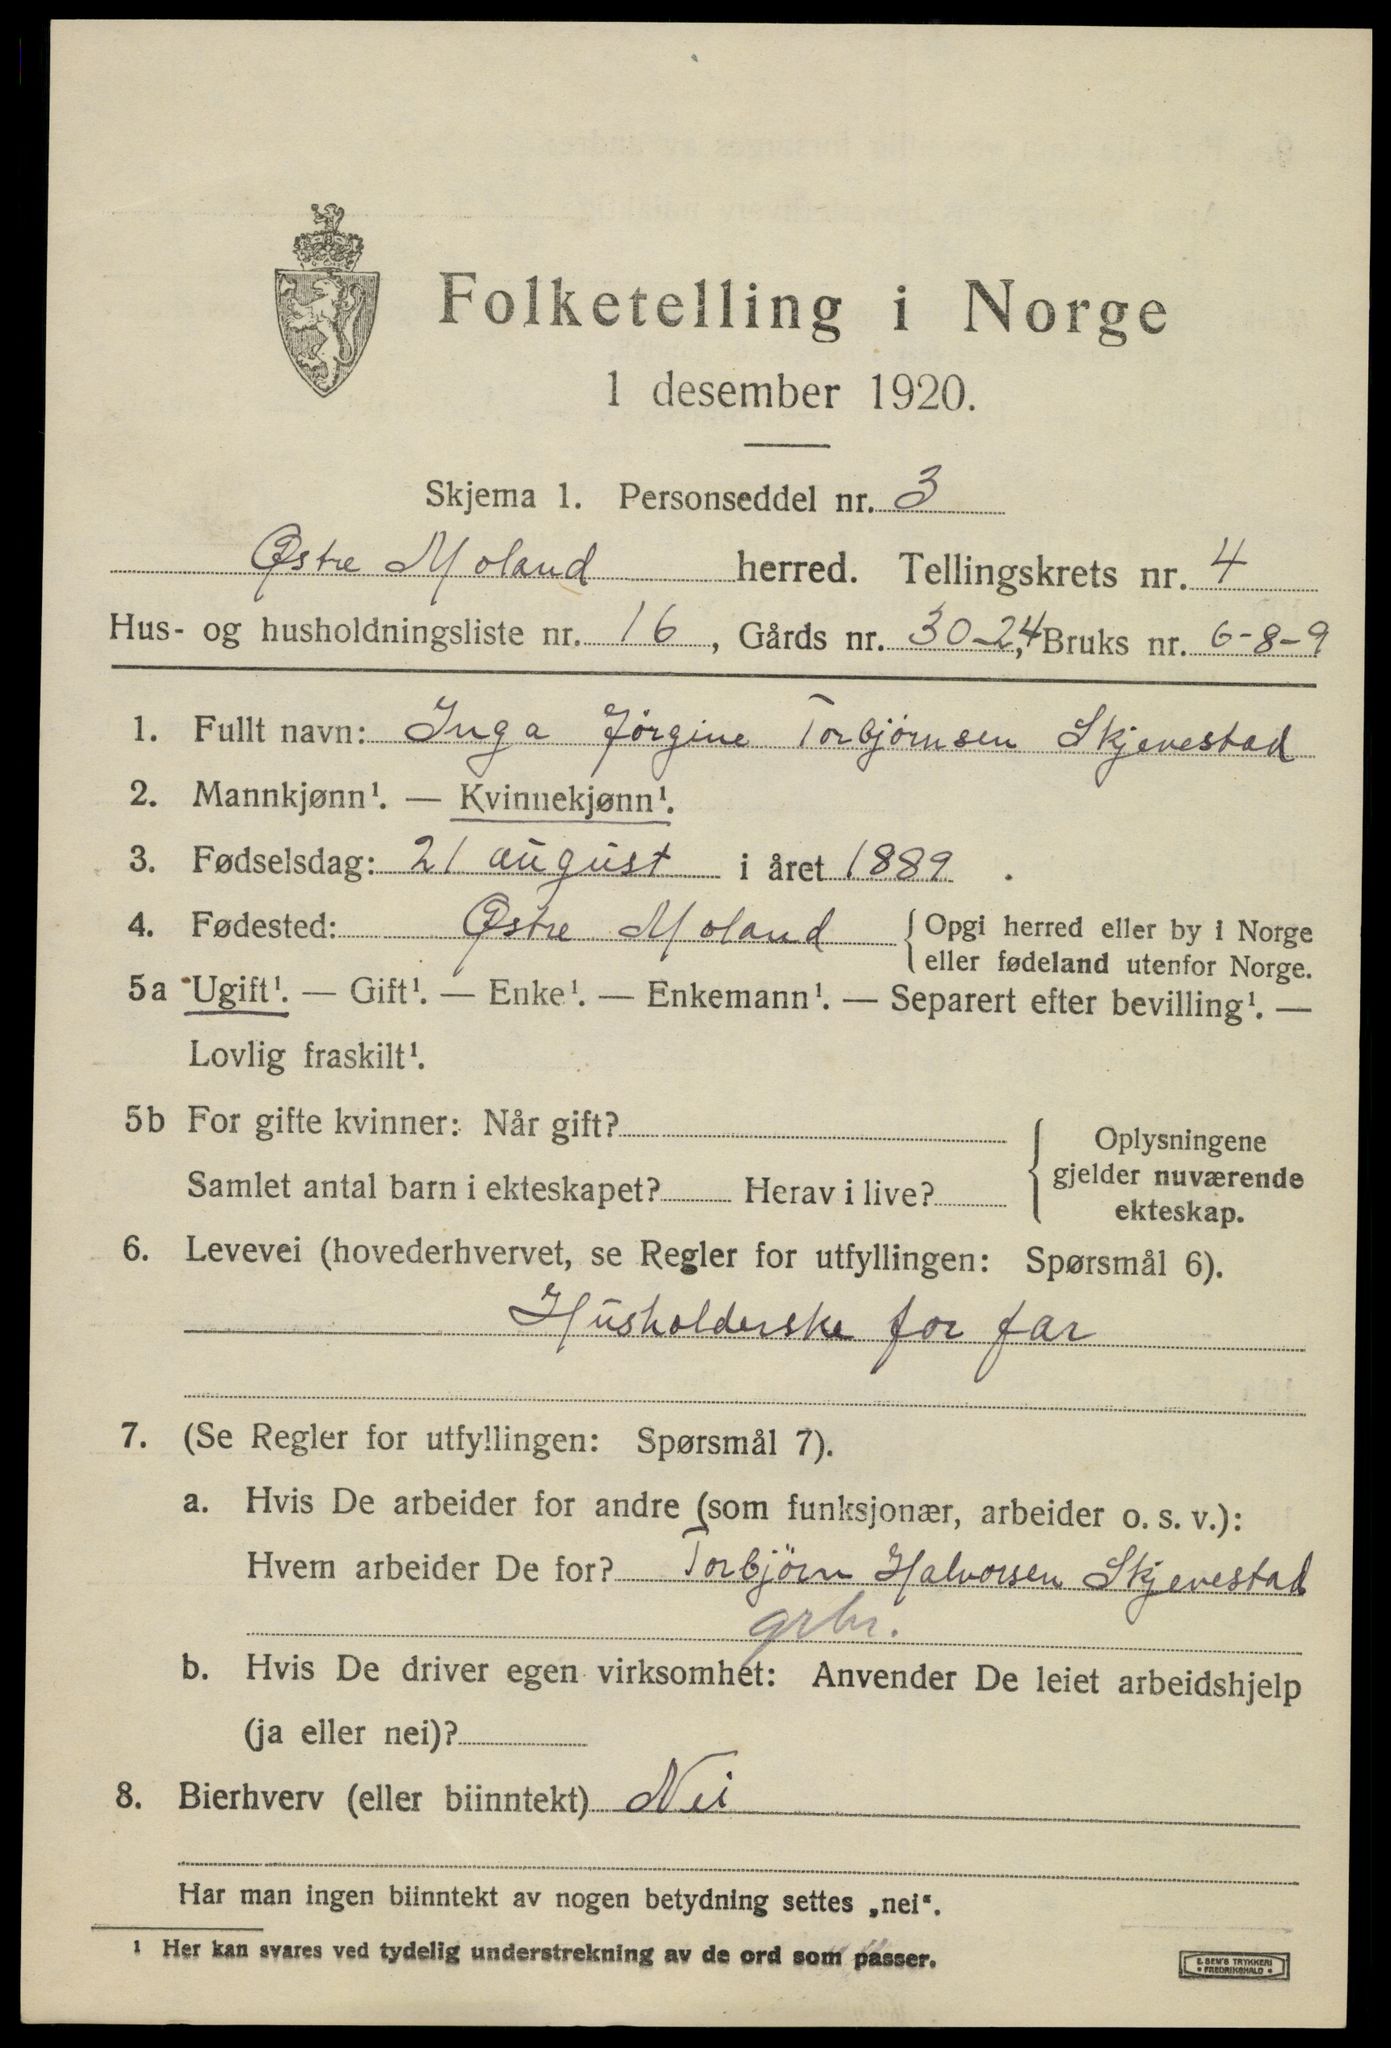 Folketelling i Norge
1 desember 1920.
Skjema 1. Personseddel nr. 3
Østre Moland herred. Tellingskrets nr. 4
Hus- og husholdningsliste nr. 16, Gårds nr. 30-24, Bruks nr. 6-8-9
1. Fullt navn: Inga Jørgine Torbjørnsen Skjevestad
2. Mannkjønn¹. — Kvinnekjønn¹.
3. Fødselsdag: 21 august i året 1889.
4. Fødested: Østre Moland { Opgi herred eller by i Norge
eller fødeland utenfor Norge.
5a Ugift¹. — Gift¹. — Enke¹. — Enkemann¹. — Separert efter bevilling¹. —
Lovlig fraskilt¹.
5b For gifte kvinner: Når gift?
Samlet antal barn i ekteskapet? Herav i live?
{ Oplysningene
gjelder nuværende
ekteskap.
6. Levevei (hovederhvervet, se Regler for utfyllingen: Spørsmål 6).
Husholderske for far
7. (Se Regler for utfyllingen: Spørsmål 7).
a. Hvis De arbeider for andre (som funksjonær, arbeider o. s. v.):
Hvem arbeider De for? Torbjörn Halvorsen Skjevestad
grbr.
b. Hvis De driver egen virksomhet: Anvender De leiet arbeidshjelp
(ja eller nei)?
8. Bierhverv (eller biinntekt) Nei
Har man ingen biinntekt av nogen betydning settes „nei“.
¹ Her kan svares ved tydelig understrekning av de ord som passer.
E. SEM'S TRYKKERI
• FREDRIKSHALD •